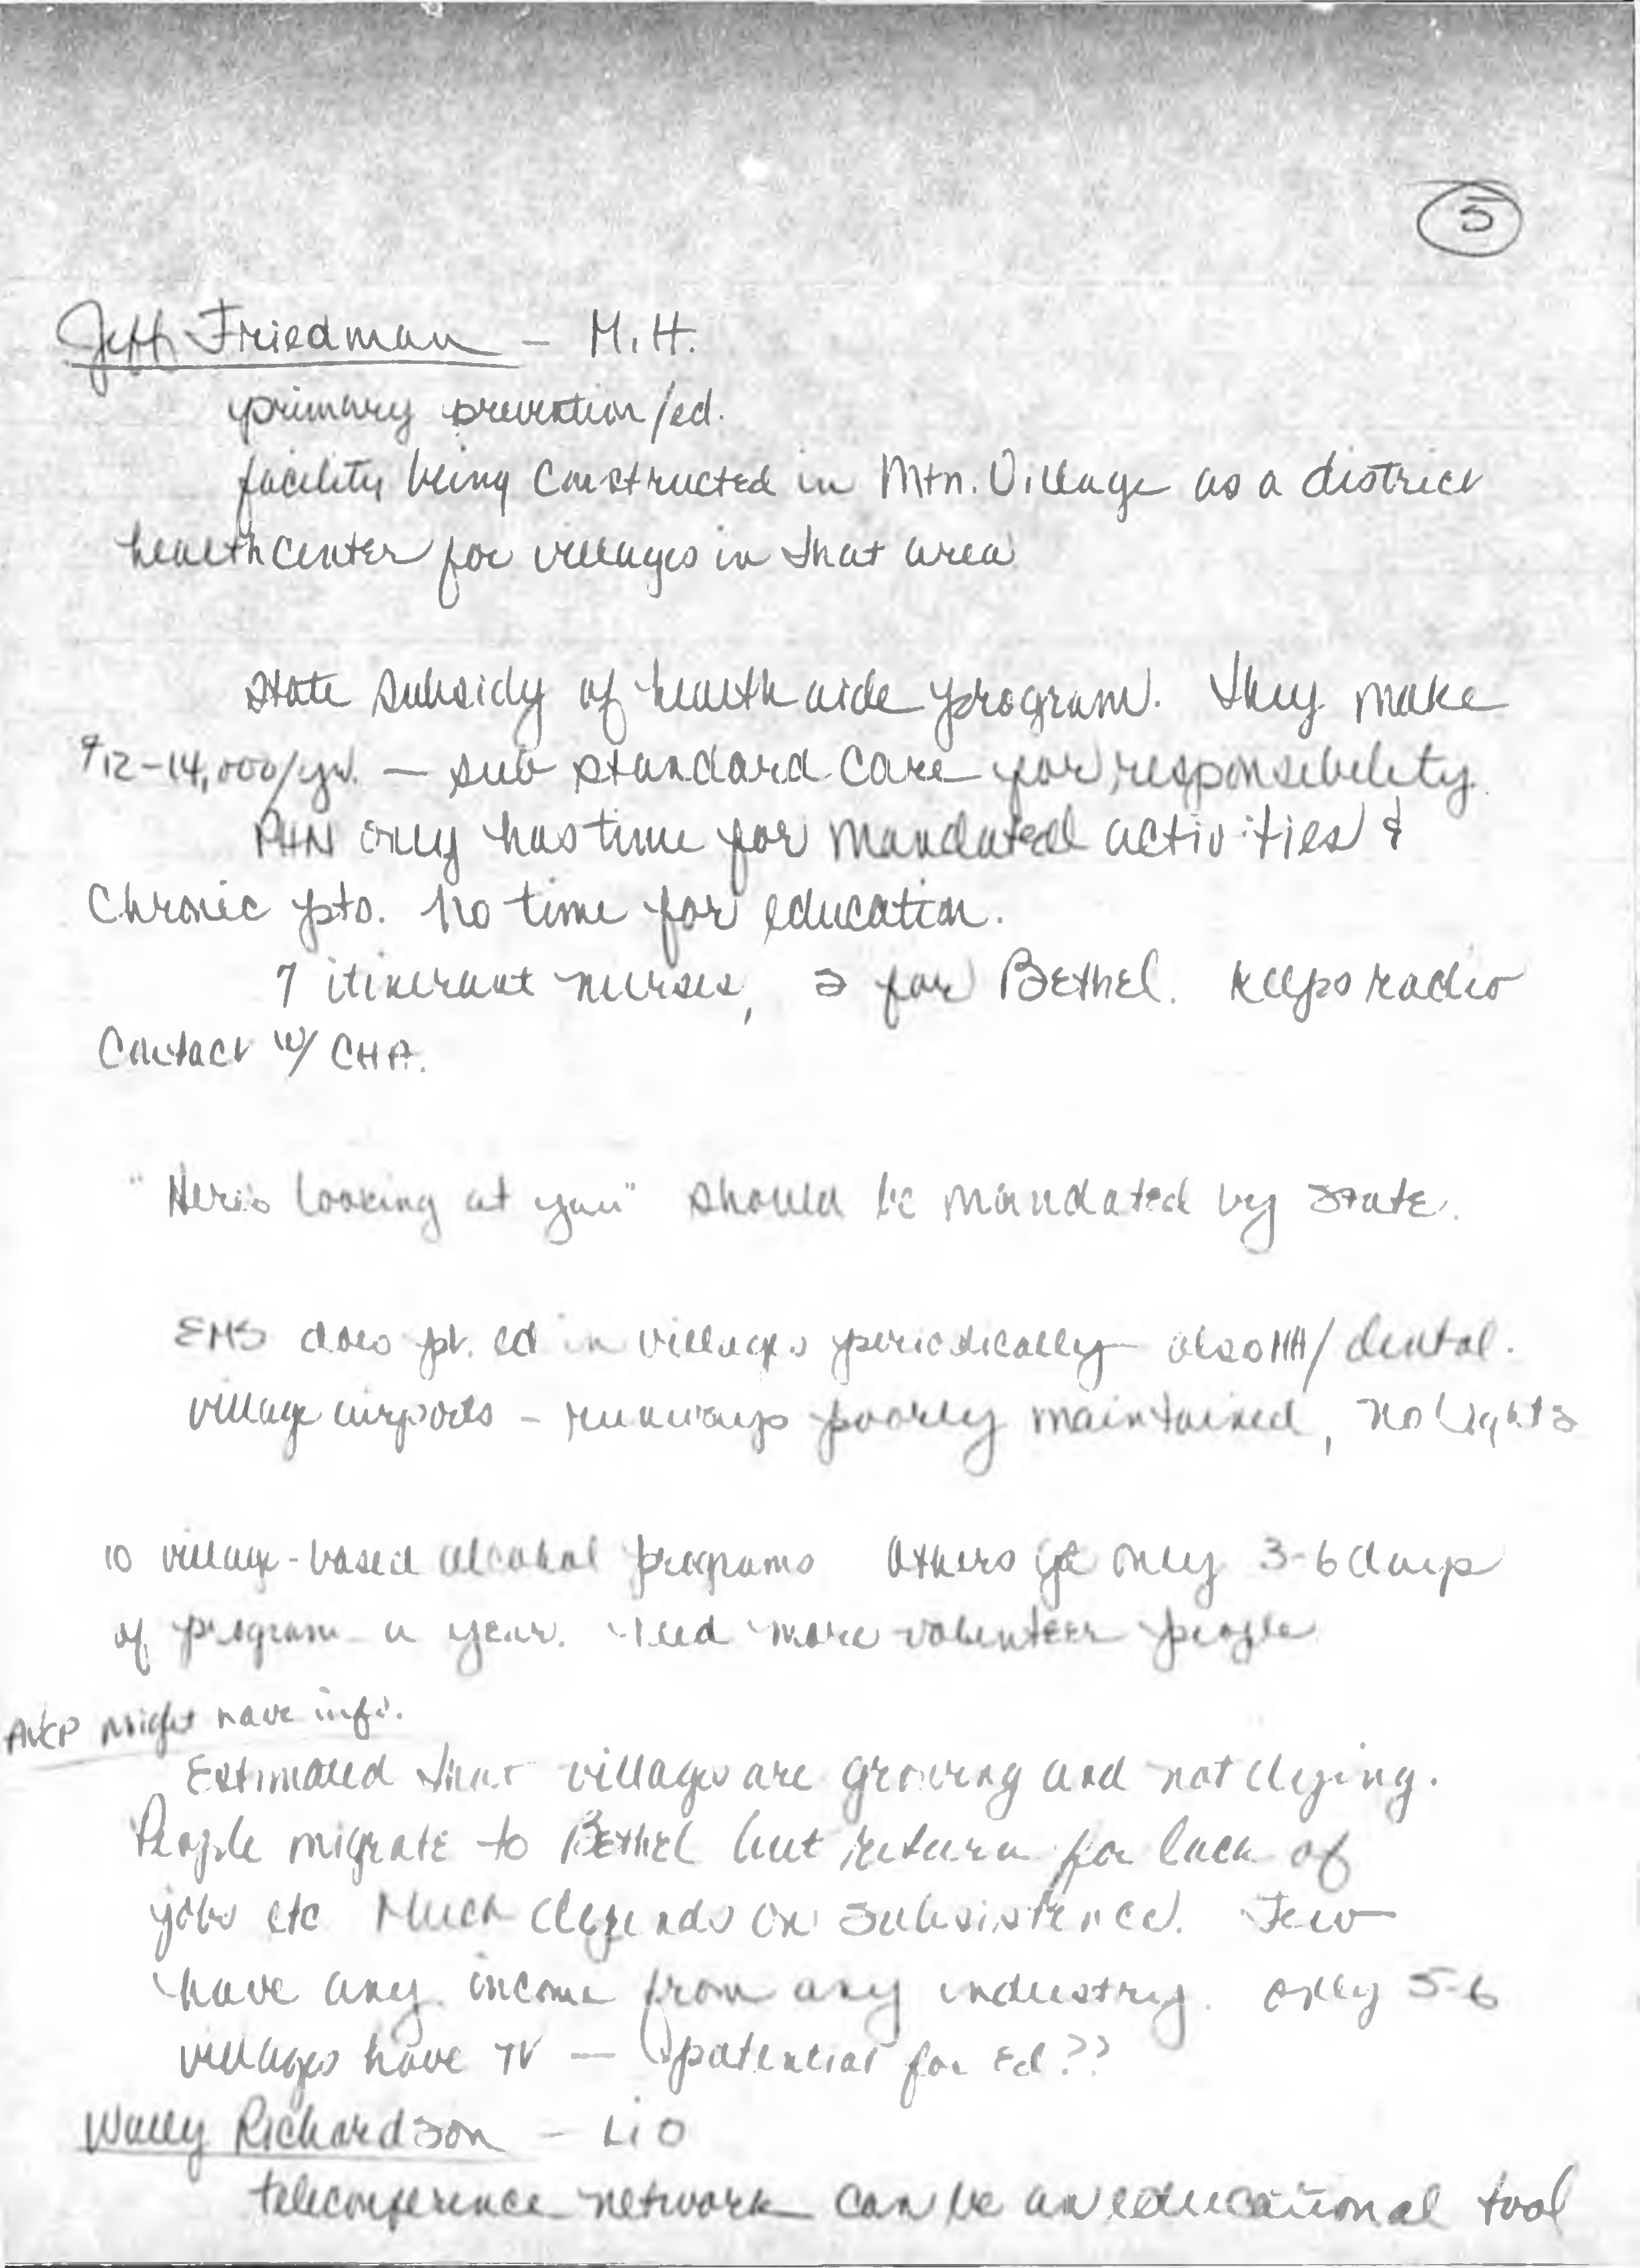 5
Jeff Friedman - M.H.
primary prevention/ed.
facility being constructed in Mtn. Village as a district
health center for villages in that area
state subsidy of health aide program. They make
$12-14,000/yr. — sub standard care for responsibility.
PHN only has time for mandated activities &
Chronic pts. No time for education.
7 itinerant nurses, 2 for Bethel. Keeps radio
Contact w/ CHA.
"Here's looking at you" should be mandated by state.
EMS does pt. ed in villages periodically - also MH/dental.
village airports - runways poorly maintained, no lights
10 village-based alcohol programs Others get only 3-6 days
of program a year. Need more volunteer people
AVCP might have info.
Estimated that villages are growing and not dying.
People migrate to Bethel but return for lack of
jobs etc Much depends on subsistence. Few
have any income from any industry. Only 5-6
villages have TV — potential for Ed??
Wally Richardson - LiO
teleconference network can be an educational tool